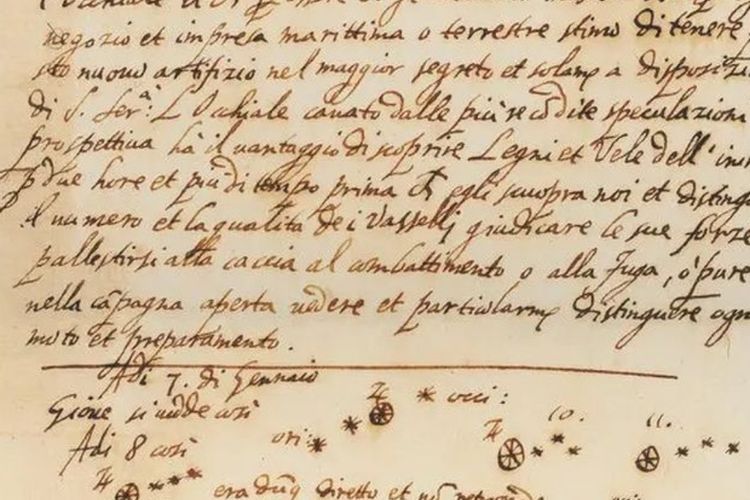 negozio et impresa marittima o terrestre stimo di tenere
sto nuovo artifizio nel maggior segreto et solamẽ a disposiz
di S. Ser.ᵃ: L'Ochiale cavato dalle più recõdite speculazioni
prospettiva hà il vantaggio di scoprire Legni et Vele dell'
p due hore et più di tempo prima ch egli scuopra noi et distingu
il numero et la qualita de i Vasselli giudicare le sue forze
pallestirsi alla caccia al combattimento o alla fuga, ò pure
nella cãpagna aperta vedere et particolarmẽ distinguere ogni
moto et preparamento.
Adi 7. di Gennaio
Giove si vedde così ♃ * occi:
Adi 8 così ori: ♃ 10. 11.
♃ era dũq diretto et nõ